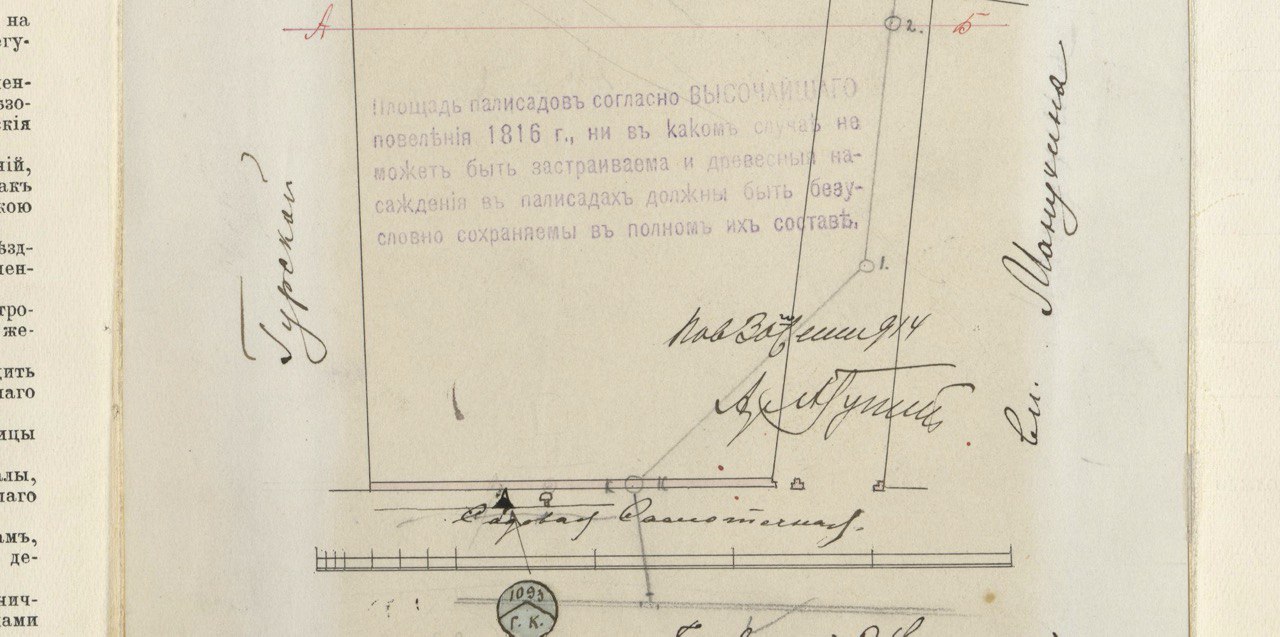 на
егу-
ен-
зо-
скія
ній,
акъ
кою
ѣзд-
лен-
тро-
же-
дить
наго
ицы
алы,
лаго
амъ,
де-
нич-
ами
А
2.
Б
Площадь палисадовъ согласно ВЫСОЧАЙШАГО
повелѣнія 1816 г., ни въ какомъ случаѣ не
можетъ быть застраиваема и древесныя на-
сажденія въ палисадахъ должны быть безу-
словно сохраняемы въ полномъ ихъ составѣ.
Гурской
вл. Манухина
1.
914
К К
Садовая Самотечная.
1093
Г. К.